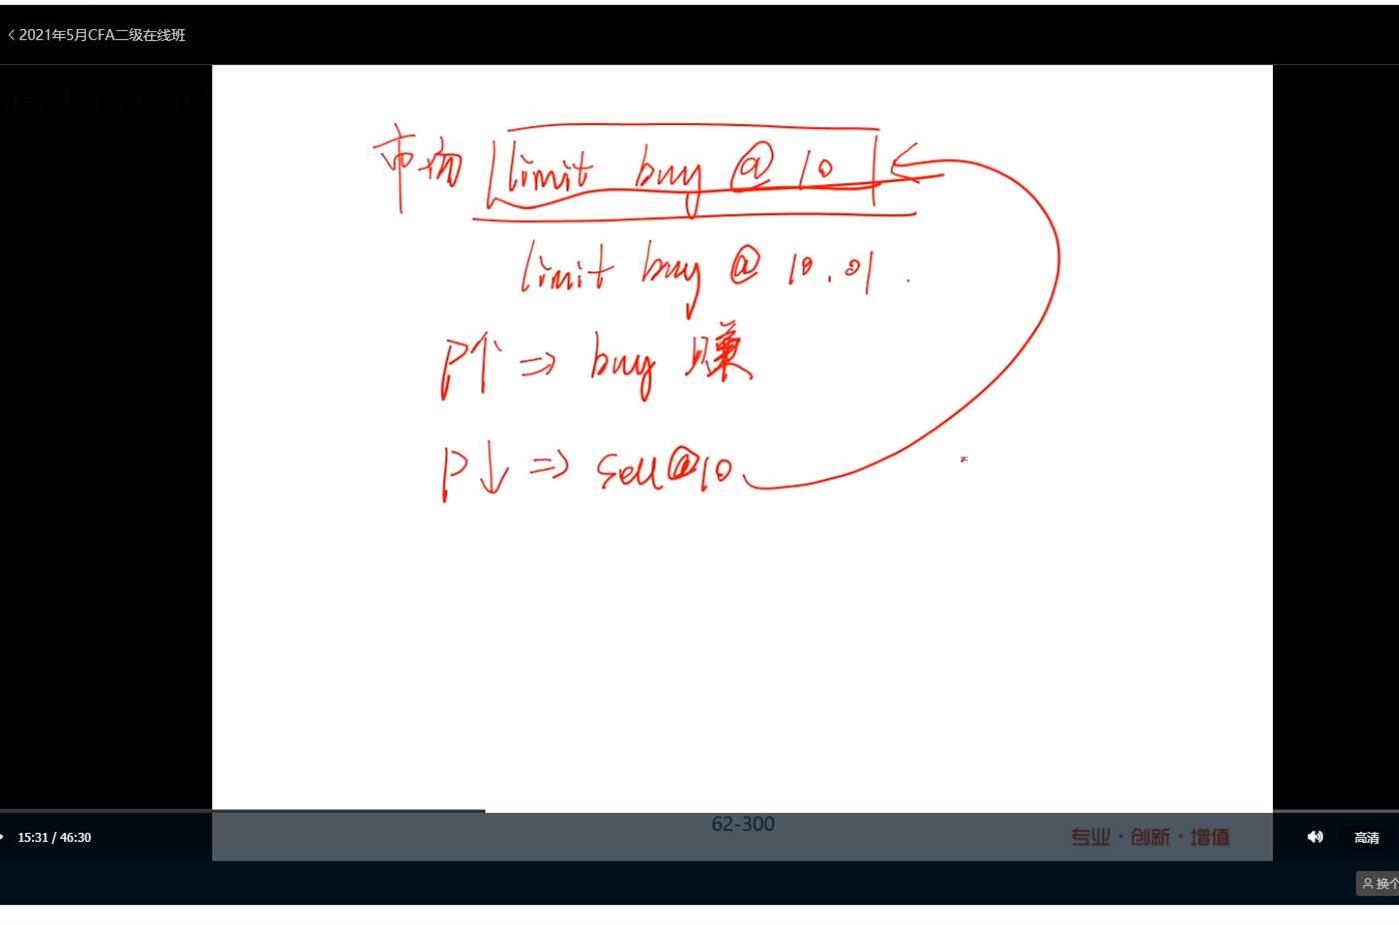 2021年5月CFA二级在线班
市场 limit buy @ 10
limit buy @ 10.01
P↑ ⇒ buy 赚
P↓ ⇒ sell@10
62-300
专业·创新·增值
15:31 / 46:30
高清
换个